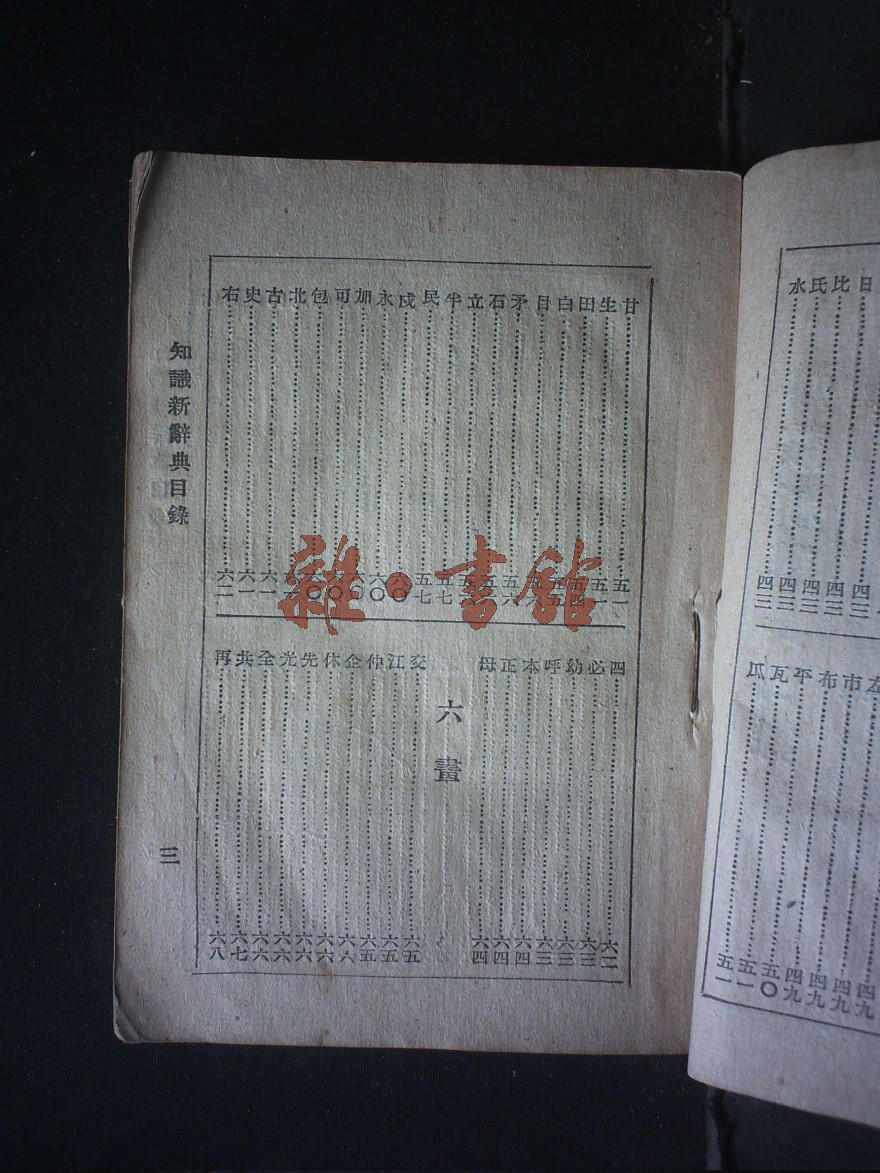 日
比 四三
氏 四三
水 四三
左 四九
市 四九
布 四九
平 五〇
瓦 五一
瓜 五一
甘 五一
生
田 五四
白 五五
目
矛 五六
石
立
半 五七
民 五七
戊 六〇
永 六〇
加
可
包 六〇
北
古 六一
史 六一
右 六二
四 六二
必 六三
幼 六三
呼 六三
本 六四
正 六四
母 六四
六畫
交 六五
江 六五
仲 六五
企 六六
休 六六
先 六六
光 六六
全 六六
共 六七
再 六八
知識新辭典目錄
三
雜·書館